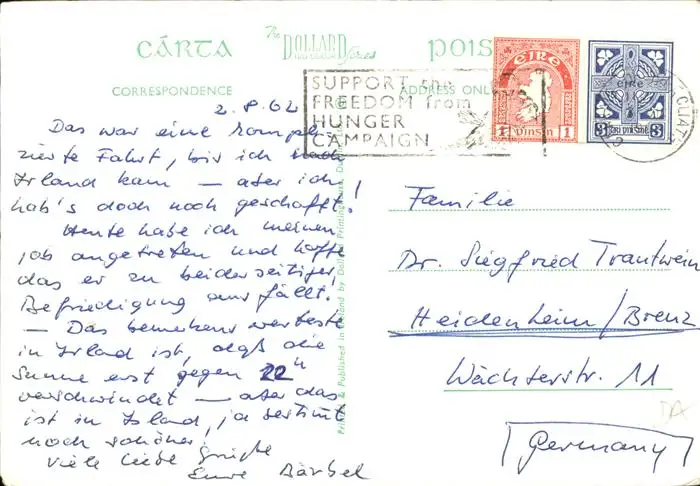 CÁRTA
The DOLLARD Series
POIS
CORRESPONDENCE
ADDRESS ONL
SUPPORT the
FREEDOM from
HUNGER
CAMPAIGN
éire
1 pinsin 1
éire
3
3
2.8.62
Das war eine kompli-
zierte Fahrt, bis ich nach
Irland kam – aber ich
hab's doch noch geschafft!
Heute habe ich meinen
Job angetreten und hoffe
das er zu beiderseitiger
Befriedigung ausfällt!
– Das bemerkenswerteste
in Irland ist, daß die
Sonne erst gegen 22"
verschwindet – aber das
ist in Island, ja bestimmt
noch schöner.
Viele liebe Grüße
Eure Bärbel
Familie
Dr. Siegfried Trautwein
Heidenheim/Brenz
Wächterstr. 11
Germany